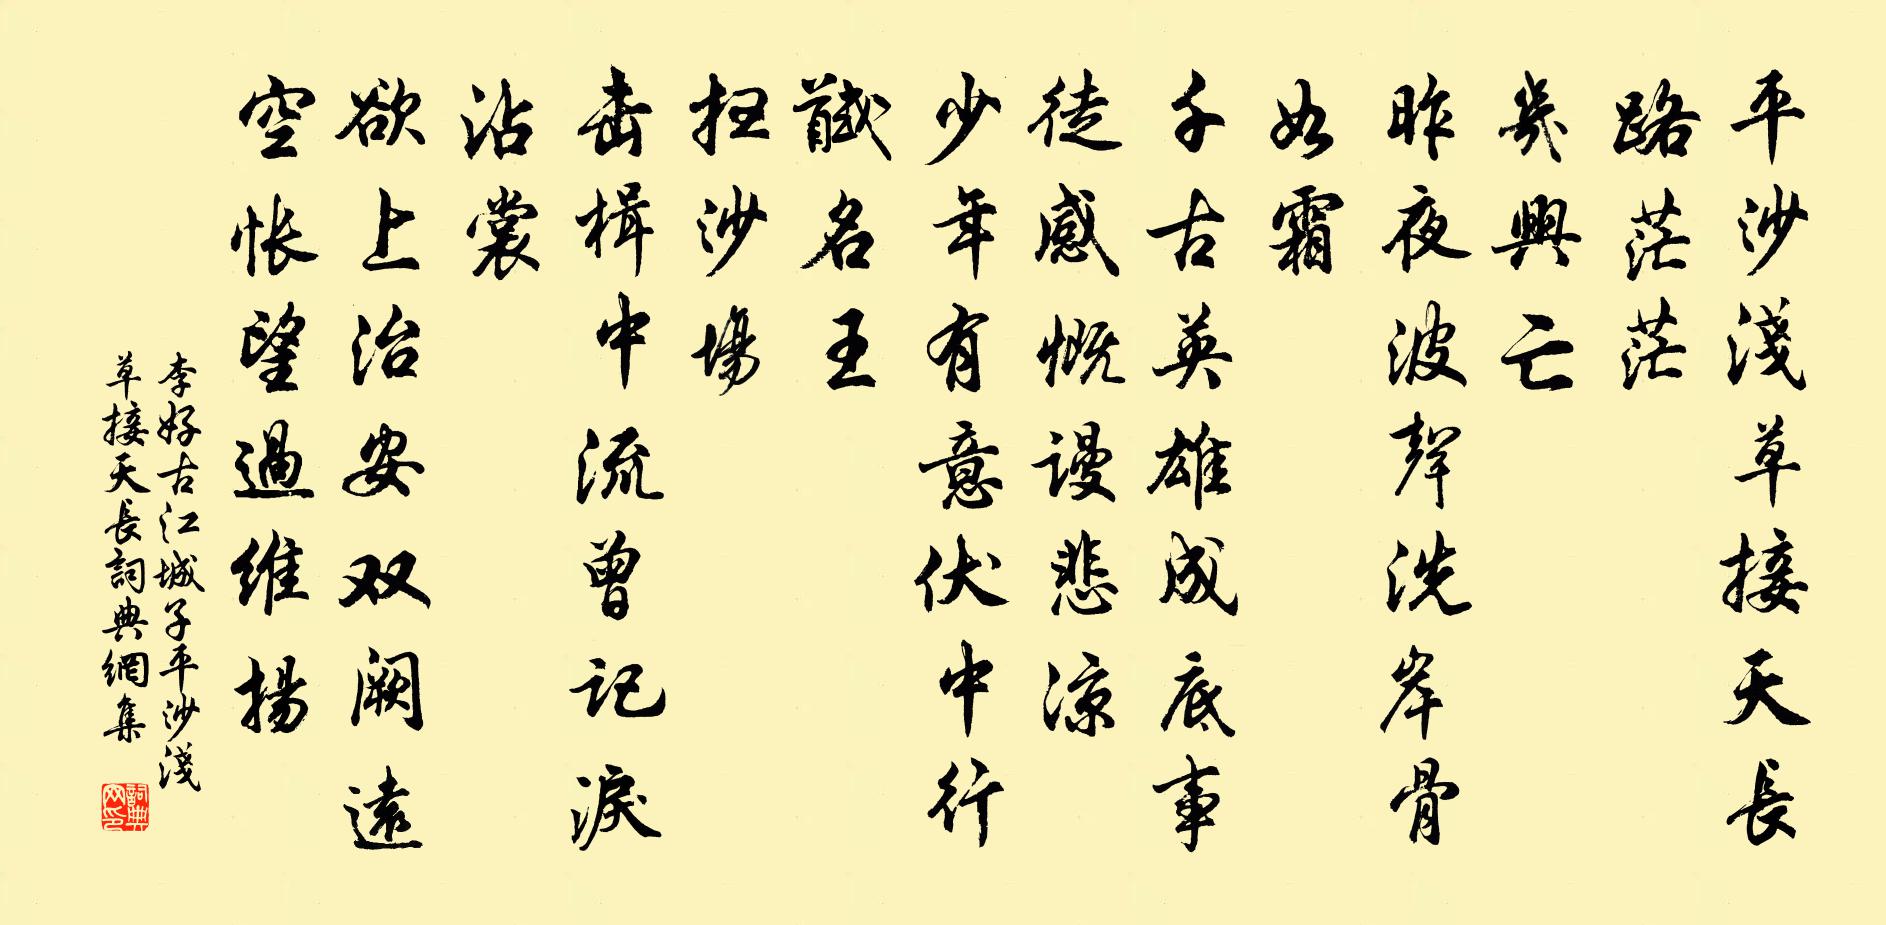 平沙淺草接天長
路茫茫
幾興亡
昨夜波聲洗岸骨
如霜
千古英雄成底事
徒感慨謾悲涼
少年有意伏中行
馘名王
扫沙場
击楫中流曾记淚
沾裳
欲上治安双阙遠
空怅望過維揚
李好古江城子平沙淺
草接天長詞典網集
詞典
网印